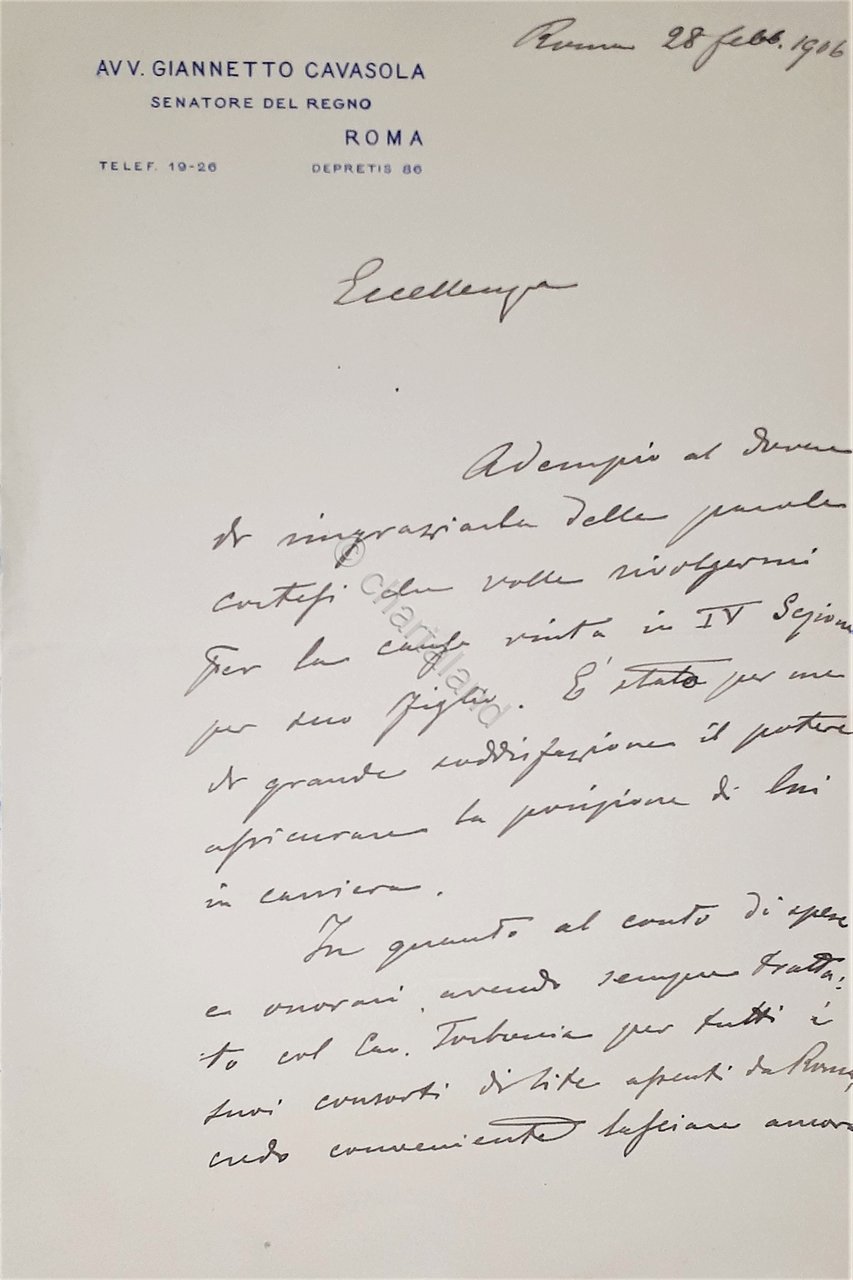 Roma 28 febb. 1906
AVV. GIANNETTO CAVASOLA
SENATORE DEL REGNO
ROMA
TELEF. 19-26 DEPRETIS 86
Eccellenza
Adempio al dovere
di ringraziarla delle parole
cortesi che volle rivolgermi
per la causa vinta in IV Sezione
per suo figlio. E' stato per me
di grande soddisfazione il potere
assicurare la posizione di lui
in carriera.
In quanto al conto di spese
e onorari, avendo sempre tratta:
to col Cav. per tutti i
suoi consorti di lite assenti da Roma,
credo conveniente lasciare ancora
© chartaland